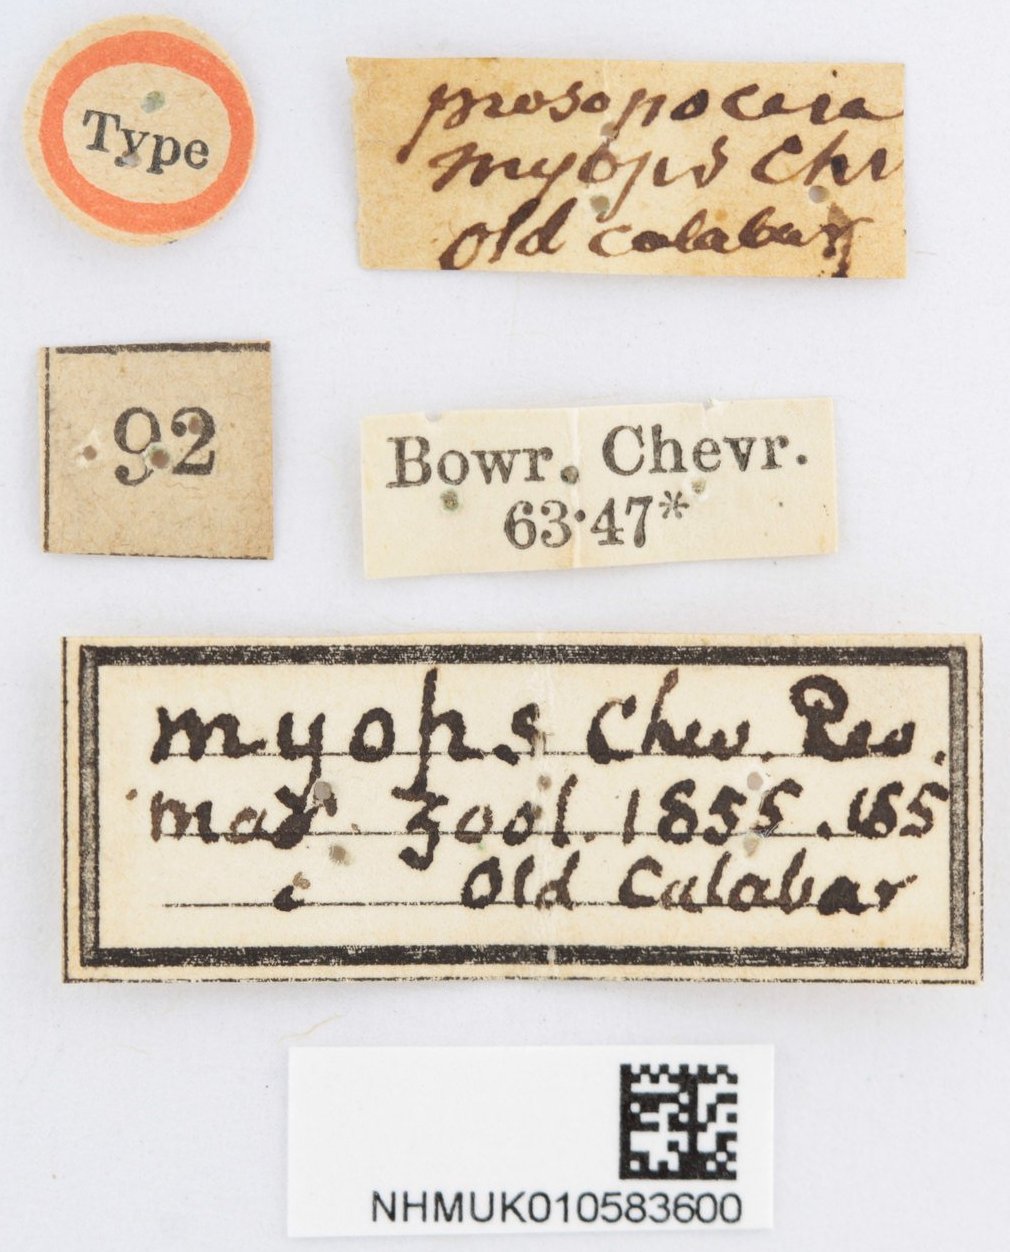 Type
prosopoceia
myops Chv
Old calabar
92
Bowr. Chevr.
63·47*
myops Chev. Rev.
mag. Zool. 1855. 185
c Old Calabar
NHMUK010583600